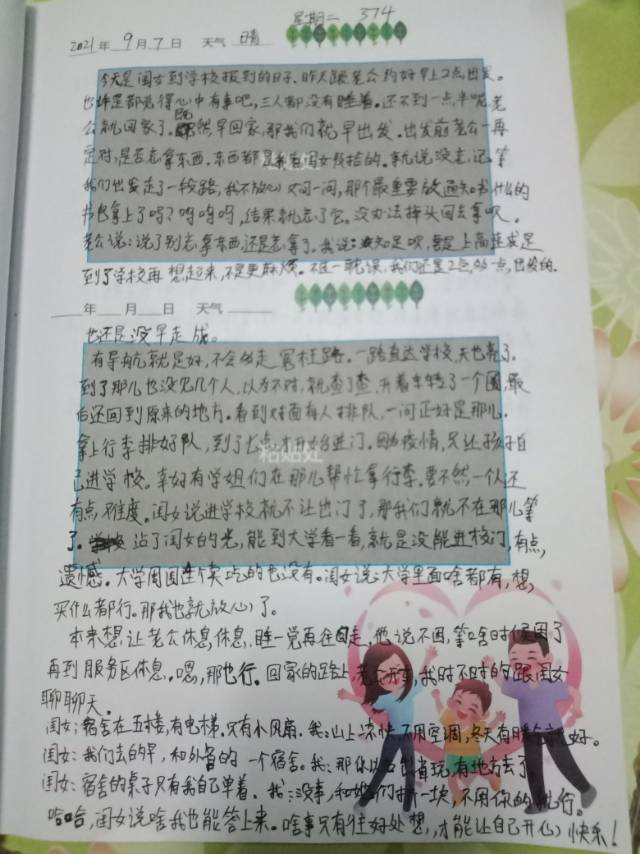 星期二 374
2021年 9月7日 天气 晴
今天是闺女到学校报到的日子。昨天跟老公约好早上2点出发。
也许是都觉得心中有事吧,三人都没有睡着。还不到一点半呢,老
公就回家了。既然早回家,那我们就早出发。出发前老公一再
定对,是否忘拿东西。东西都是我和闺女收拾的。就说没忘,记
我们出发走了一段路,我不放心又问一问,那个最重要放通知书什么的
书包拿上了吗?呜呜呜,结果就忘了它。没办法掉头回去拿呗。
老公说:说了别忘拿东西还是忘拿了。我说:知足呗,要是上高速或是
到了学校再想起来,不是更麻烦。不过一耽误,我们还是2点多一点,出发的。
年 月 日 天气
也还是没早走成。
有导航就是好,不会多走冤枉路。一路直达学校,天也亮了。
到了那儿也没见几个人,以为不对,就查了查,开着车转了一个圈,最
后还回到原来的地方。看到对面有人排队,一问正好是那儿。
拿上行李排好队,到了七点才开始进门。因为疫情,只让孩子自
己进学校。幸好有学姐们在那儿帮忙拿行李,要不然一个人还
有点难度。闺女说进学校就不让出门了,那我们就不在那儿等
了。沾了闺女的光,能到大学看一看,就是没能进校门,有点,
遗憾。大学周围连个卖吃的也没有。闺女说:大学里面啥都有,想,
买什么都行。那我也就放心了。
粘贴处
本来想让老公休息休息,睡一觉再往回走。他说不困,等啥时候困了
再到服务区休息。嗯,那也行。回家的路上,老公开车,我时不时的跟闺女
聊聊天。
闺女:宿舍在五楼,有电梯,只有小风扇。我:山上凉快不用空调,冬天有暖气就好。
闺女:我们去的早,和外省的一个宿舍。我:那你以后出省玩,有地方去了
闺女:宿舍的桌子只有我自己单着。我:没事,和她们拼一块,不用你的就行。
哈哈,闺女说啥我也能答上来。啥事只有往好处想,才能让自己开心快乐!